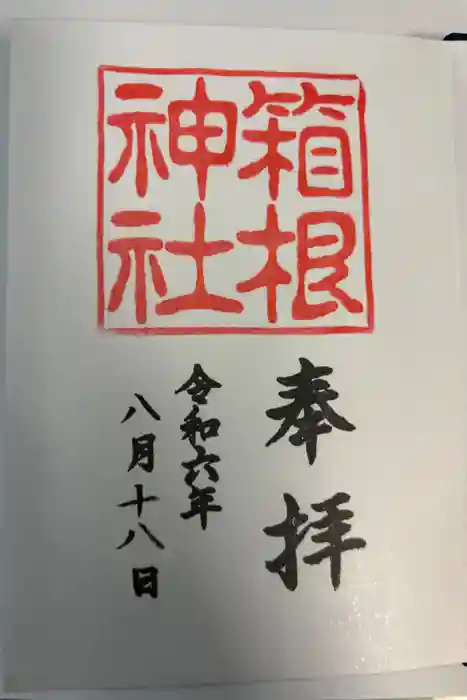 箱根
神社
奉拝
令和六年
八月十八日